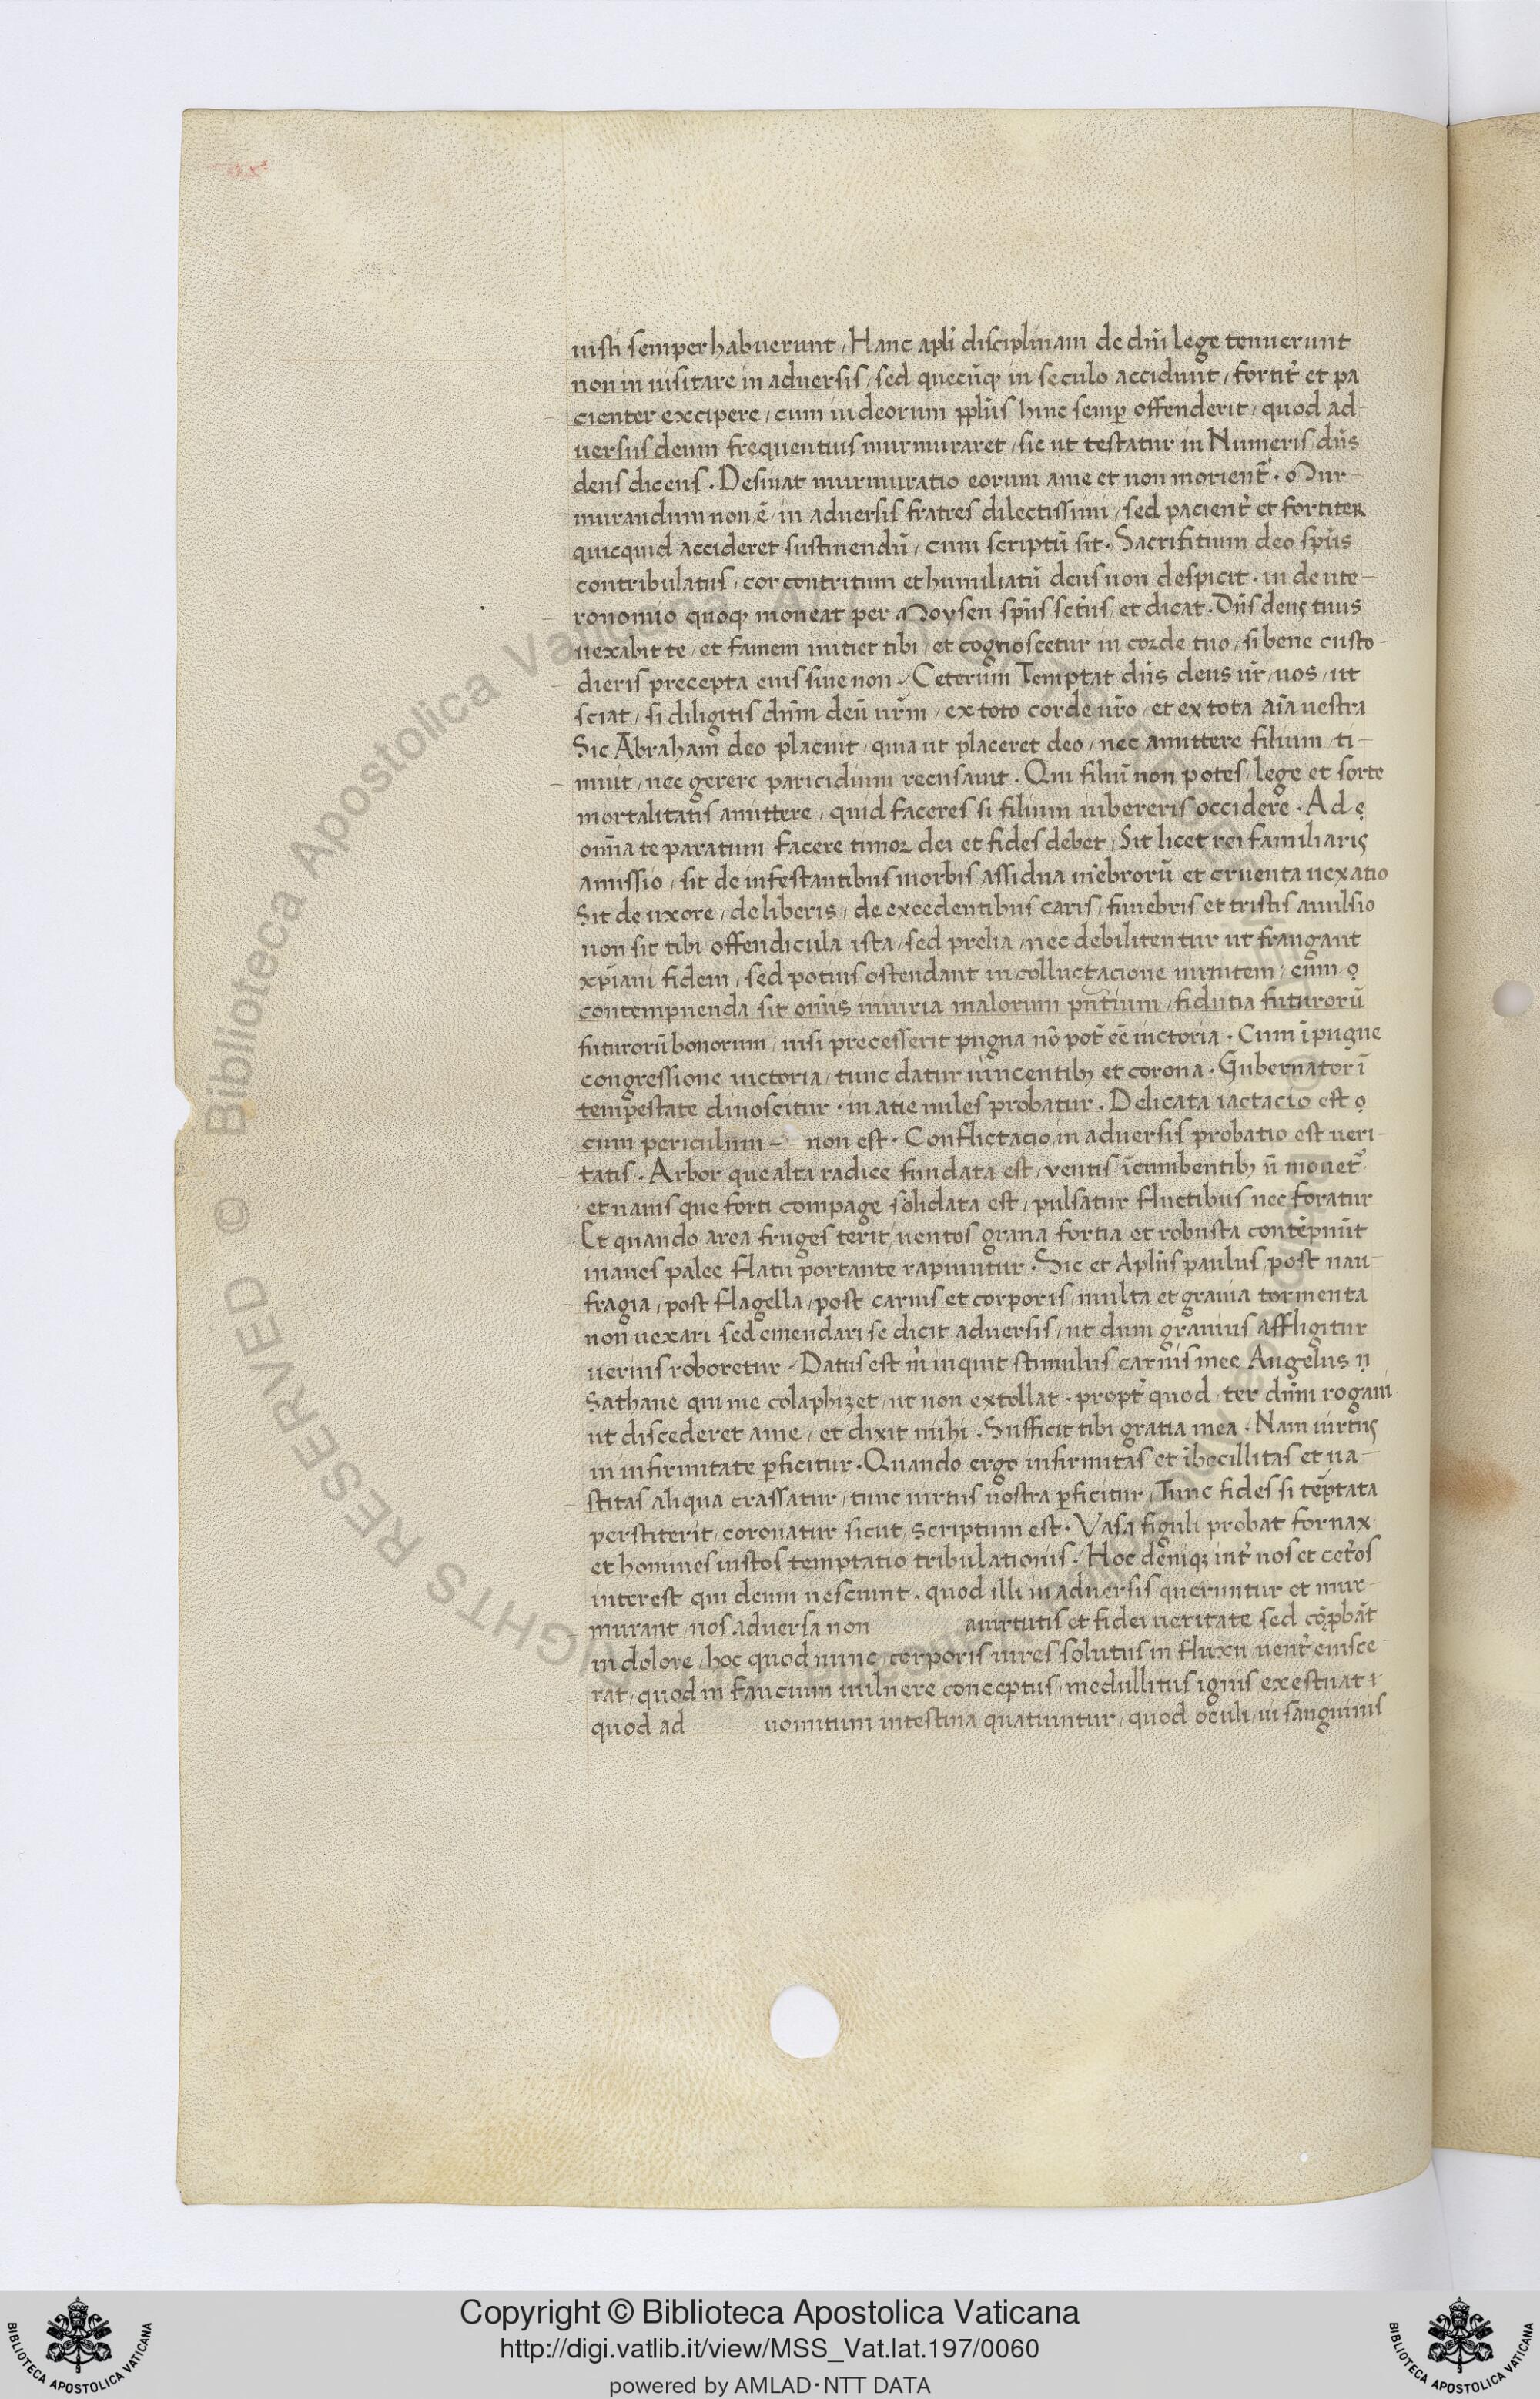 iusti semper habuerunt, Hanc apli disciplinam de dni lege tenuerunt
non in uisitare in aduersis, sed quecūq; in seculo accidunt, fortit̉ et pa
cienter excipere, cum iudeorum ppl̄us hinc semp offenderit, quod ad
uersus deum frequentius murmuraret, sic ut testatur in Numeris dn̄s
deus dicens. Desinat murmuratio eorum a me et non morient̄. Mur-
murandum non ē in aduersis fratres dilectissimi, sed pacient̉ et fortiter
quicquid accideret sustinendū, cum scriptū sit. Sacrifitium deo sp̄us
contribulatus, cor contritum et humiliatū deus non despicit. in deute-
ronomio quoq; moneat per Moysen sp̄us sc̄tus, et dicat. Dn̄s deus tuus
uexabit te, et famem mittet tibi, et cognoscetur in corde tuo, si bene custo-
dieris precepta eius siue non. Ceterum Temptat dn̄s deus ur̄ uos, ut
sciat, si diligitis dn̄m deū ur̄m, ex toto corde ur̄o, et ex tota aīa uestra
Sic Abraham deo placuit, quia ut placeret deo, nec amittere filium ti-
muit, nec gerere paricidium recusauit. Qui filiū non potes, lege et sorte
mortalitatis amittere, quid faceres si filium iubereris occidere. Ad ę
om̄ia te paratum facere timor dei et fides debet, Sit licet rei familiaris
amissio, sit de infestantibus morbis assidua mēbrorū et cruenta uexatio
Sit de uxore, de liberis, de excedentibus caris, funebris et tristis auulsio
non sit tibi offendicula ista, sed prelia, nec debilitentur ut frangant
xp̄iani fidem, sed potius ostendant in colluctacione uirtutem, cum ọ
contempnenda sit om̄is iniuria malorum pn̄tium, fidutia futurorū
futurorū bonorum, nisi precesserit pugna nō pot̄ eē uictoria. Cum ī pugne
congressione uictoria, tunc datur uincentib; et corona. Gubernator ī
tempestate dinoscitur. in atie miles probatur. Delicata iactacio est ọ
cum periculum – non est. Conflictacio in aduersis probatio est ueri-
tatis. Arbor que alta radice fundata est, uentis īcumbentib; n̄ mouet̄.
et nauis que forti compage solidata est, pulsatur fluctibus nec foratur
Et quando area fruges terit, uentos grana fortia et robusta contēpnūt
inanes palee flatu portante rapiuntur. Sic et Apl̄us paulus, post nau-
fragia, post flagella, post carnis et corporis, multa et grauia tormenta
non uexari sed emendari se dicit aduersis, ut dum grauius affligitur
uerius roboretur. Datus est m̉ inquit stimulus carnis mee Angelus ṇ
Sathane qui me colaphizet, ut non extollat. propt̉ quod, ter dn̄m rogaui
ut discederet a me, et dixit mihi. Sufficit tibi gratia mea. Nam uirtus
in infirmitate p̄ficitur. Quando ergo infirmitas et ībecillitas et ua-
stitas aliqua crassatur, tunc uirtus nostra p̄ficitur, Tunc fides si tēptata
perstiterit, coronatur sicut scriptum est. Vasa figuli probat fornax
et homines iustos temptatio tribulationis. Hoc deniq; int̉ nos et cet̉os
interest qui deum nesciunt. quod illi in aduersis queruntur et mur-
murant, nos aduersa non a uirtutis et fidei ueritate sed
in dolore, hoc quod nunc, corporis uires solutus in fluxu uent̉ euisce-
rat, quod in faucium uulnere conceptus, medullitus ignis exestuat ı
quod ad uomitum intestina quatiuntur, quod oculi, ui sanguinis
Biblioteca Apostolica Vaticana
© Biblioteca Apostolica Vaticana ALL RIGHTS RESERVED
Copyright © Biblioteca Apostolica Vaticana
http://digi.vatlib.it/view/MSS_Vat.lat.197/0060
powered by AMLAD·NTT DATA
BIBLIOTECA APOSTOLICA VATICANA
BIBLIOTECA APOSTOLICA VATICANA